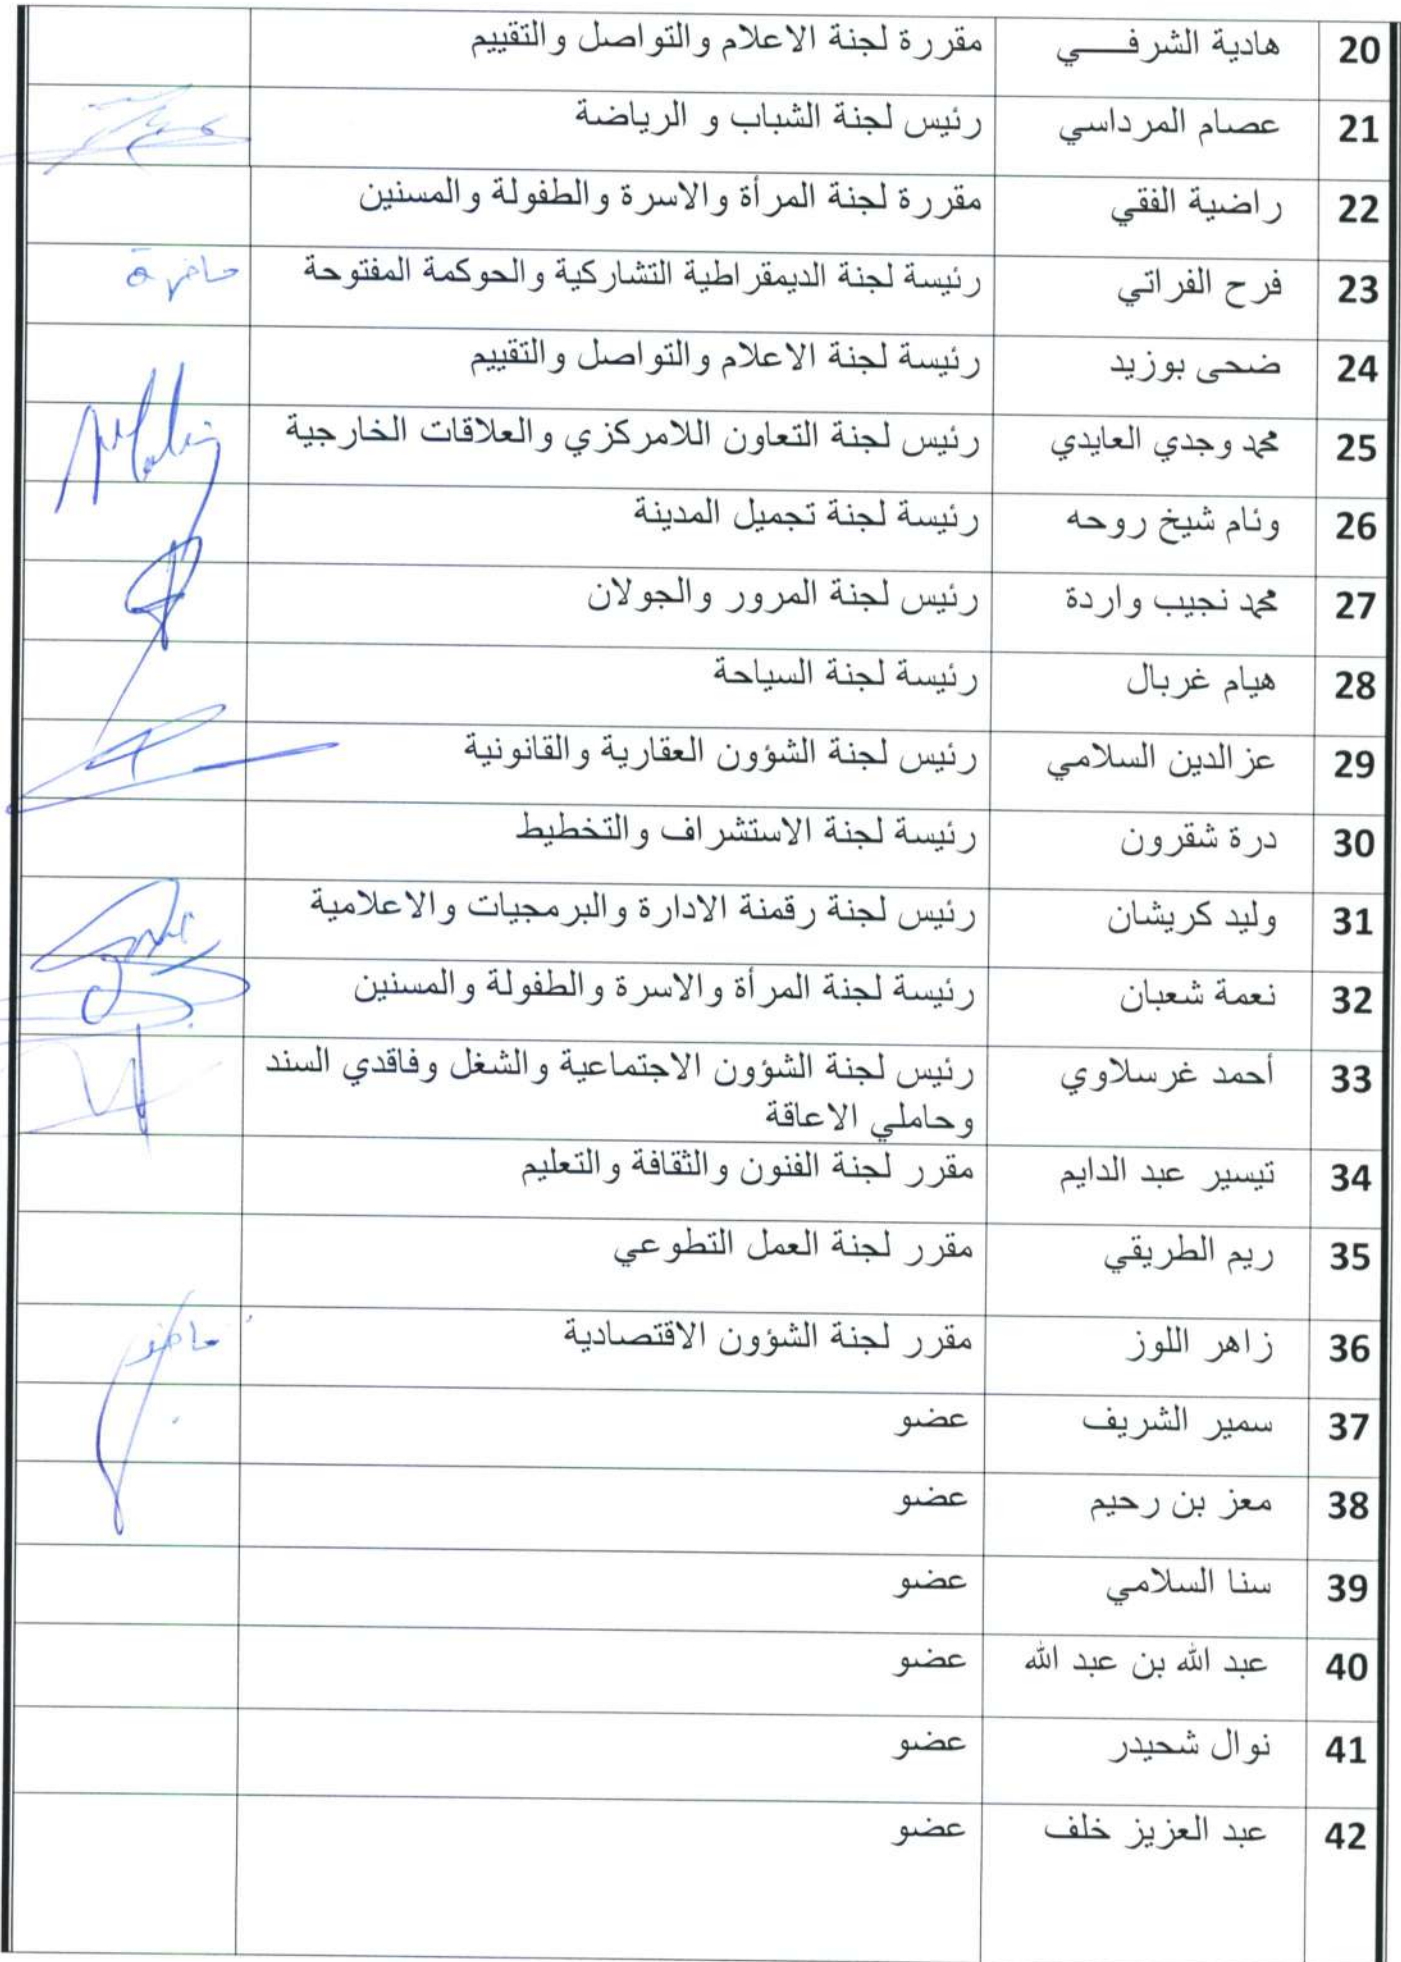 20 هادية الشرفـــــي مقررة لجنة الاعلام والتواصل والتقييم
21 عصام المرداسي رئيس لجنة الشباب و الرياضة
22 راضية الفقي مقررة لجنة المرأة والاسرة والطفولة والمسنين
23 فرح الفراتي رئيسة لجنة الديمقراطية التشاركية والحوكمة المفتوحة حاضرة
24 ضحى بوزيد رئيسة لجنة الاعلام والتواصل والتقييم
25 محمد وجدي العايدي رئيس لجنة التعاون اللامركزي والعلاقات الخارجية
26 وئام شيخ روحه رئيسة لجنة تجميل المدينة
27 محمد نجيب واردة رئيس لجنة المرور والجولان
28 هيام غربال رئيسة لجنة السياحة
29 عزالدين السلامي رئيس لجنة الشؤون العقارية والقانونية
30 درة شقرون رئيسة لجنة الاستشراف والتخطيط
31 وليد كريشان رئيس لجنة رقمنة الادارة والبرمجيات والاعلامية
32 نعمة شعبان رئيسة لجنة المرأة والاسرة والطفولة والمسنين
33 أحمد غرسلاوي رئيس لجنة الشؤون الاجتماعية والشغل وفاقدي السند
وحاملي الاعاقة
34 تيسير عبد الدايم مقرر لجنة الفنون والثقافة والتعليم
35 ريم الطريقي مقرر لجنة العمل التطوعي
36 زاهر اللوز مقرر لجنة الشؤون الاقتصادية حاضر
37 سمير الشريف عضو
38 معز بن رحيم عضو
39 سنا السلامي عضو
40 عبد الله بن عبد الله عضو
41 نوال شحيدر عضو
42 عبد العزيز خلف عضو